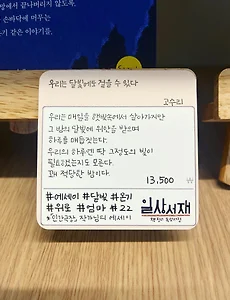 방에서 끝나버리지 않도록.
손바닥에 머무는
은기 같은 이야기들.
우리는 달빛에도 걸을 수 있다
고수리
우리는 매일을 햇빛속에서 살아가지만
그 밤의 달빛에 위안을 받으며
하루를 매듭짓는다.
우리의 하루엔 딱 그정도의 빛이
필요했는지도 모른다.
꽤 적당한 밤이다.
13,500 ₩
#에세이 #달빛 #온기
#위로 #엄마 #22
* 인간극장, 작가님의 에세이
일상서재